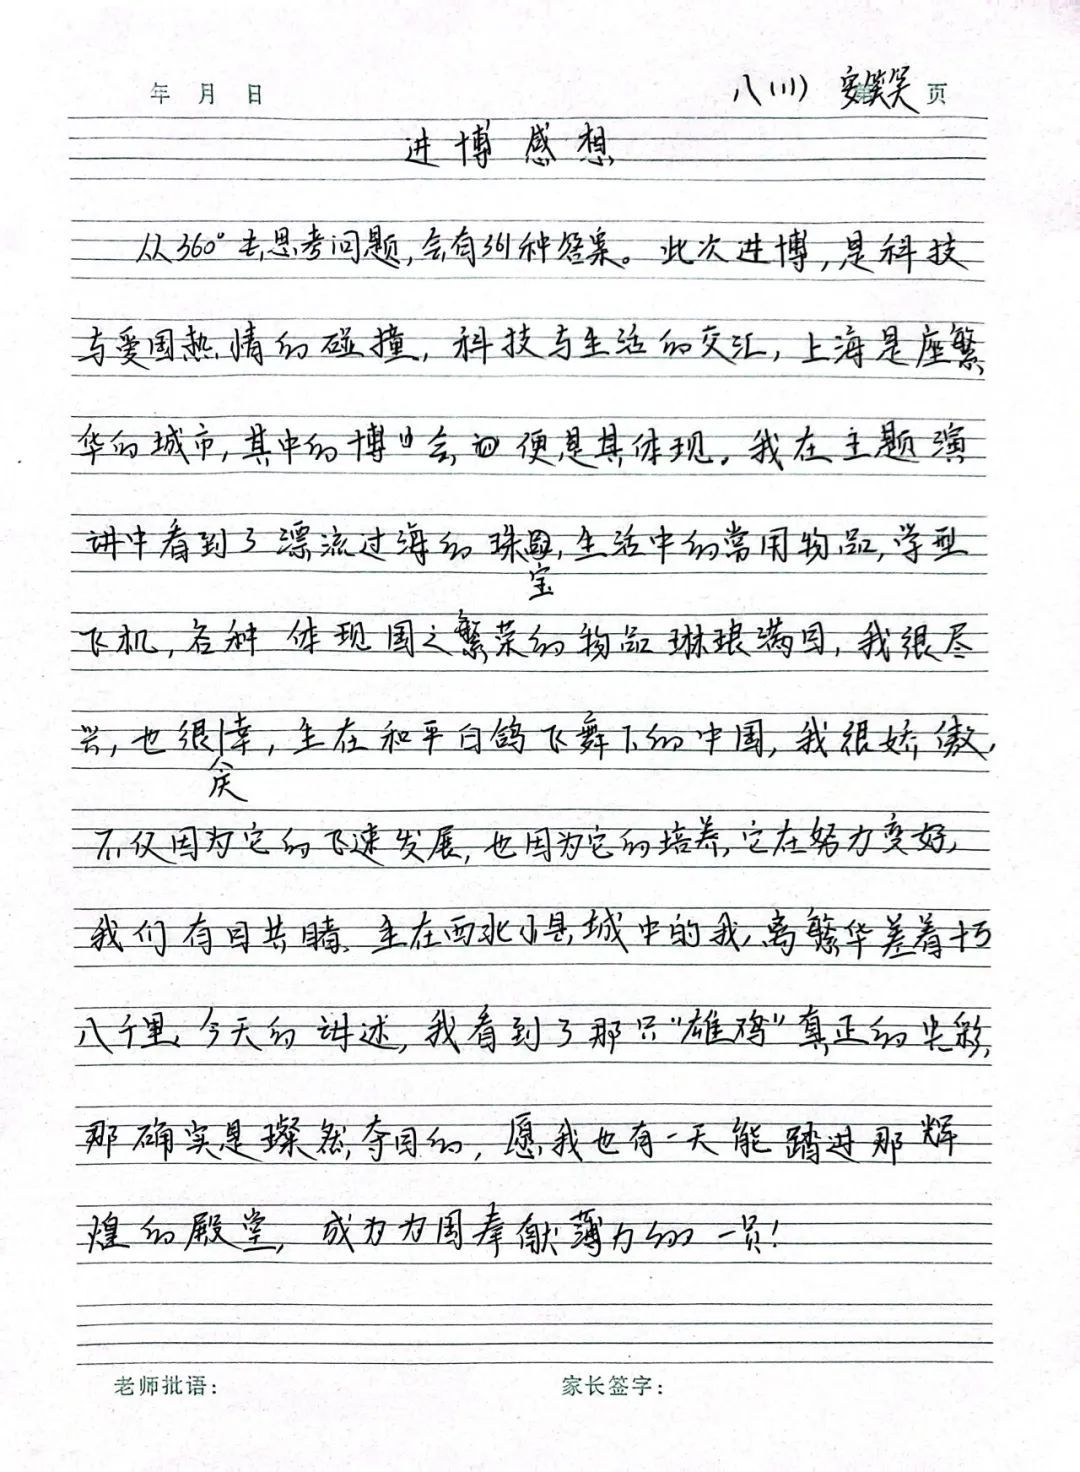 年 月 日 八(11) 安笑笑 页
进博感想
从360°去思考问题,会有361种答案。此次进博,是科技
与爱国热情的碰撞,科技与生活的交汇,上海是座繁
华的城市,其中的博览会便是其体现。我在主题演
讲中看到了漂流过海的珠宝,生活中的常用物品,学型
飞机,各种体现国之繁荣的物品琳琅满目,我很尽
兴,也很庆幸,生在和平白鸽飞舞下的中国,我很娇傲,
不仅因为它的飞速发展,也因为它的培养,它在努力变好,
我们有目共睹、生在西北小县城中的我,离繁华差着十万
八千里、今天的讲述,我看到了那只“雄鸡”真正的光彩,
那确实是璨然夺目的,愿我也有一天能踏进那辉
煌的殿堂,成为为国奉献薄力的一员!
老师批语: 家长签字: